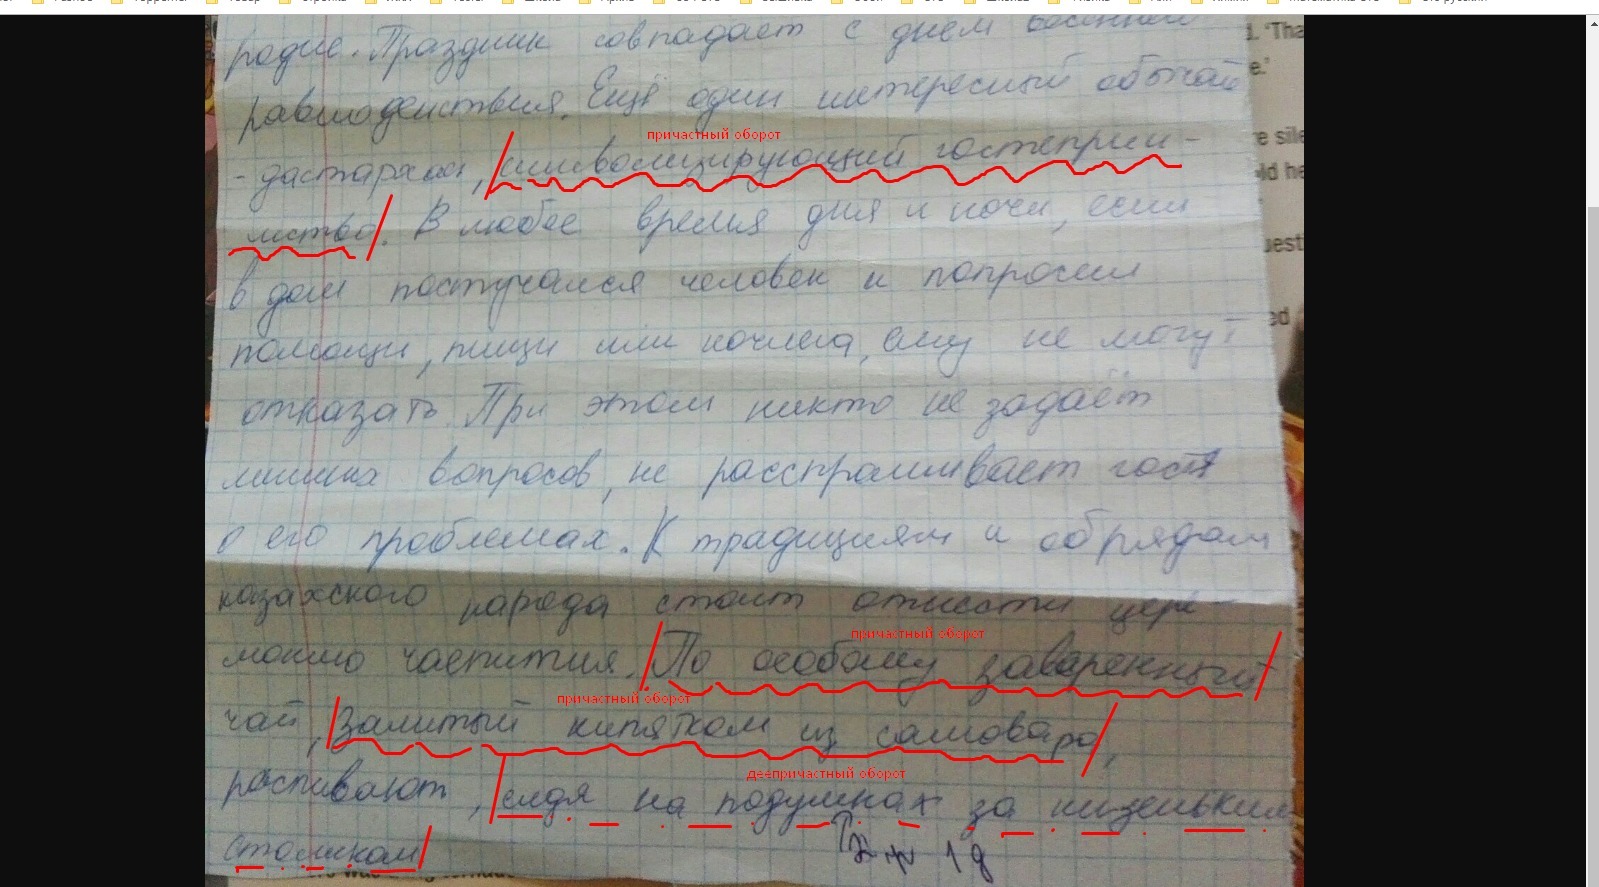 родие. Праздник совпадает с днем весеннего
равноденствия. Ещё один интересный обычай
причастный оборот
- дастархан, символизирующий гостеприи-
мство. В любое время дня и ночи, если
в дом постучался человек и попросил
помощи, пищи или ночлега, ему не могут
отказать. При этом никто не задаёт
лишних вопросов, не расспрашивает гостя
о его проблемах. К традициям и обрядам
казахского народа стоит отнести цере-
причастный оборот
монию чаепития. По особому заваренный
причастный оборот
чай, залитый кипятком из самовара,
деепричастный оборот
распивают, сидя на подушках за низеньким
столиком